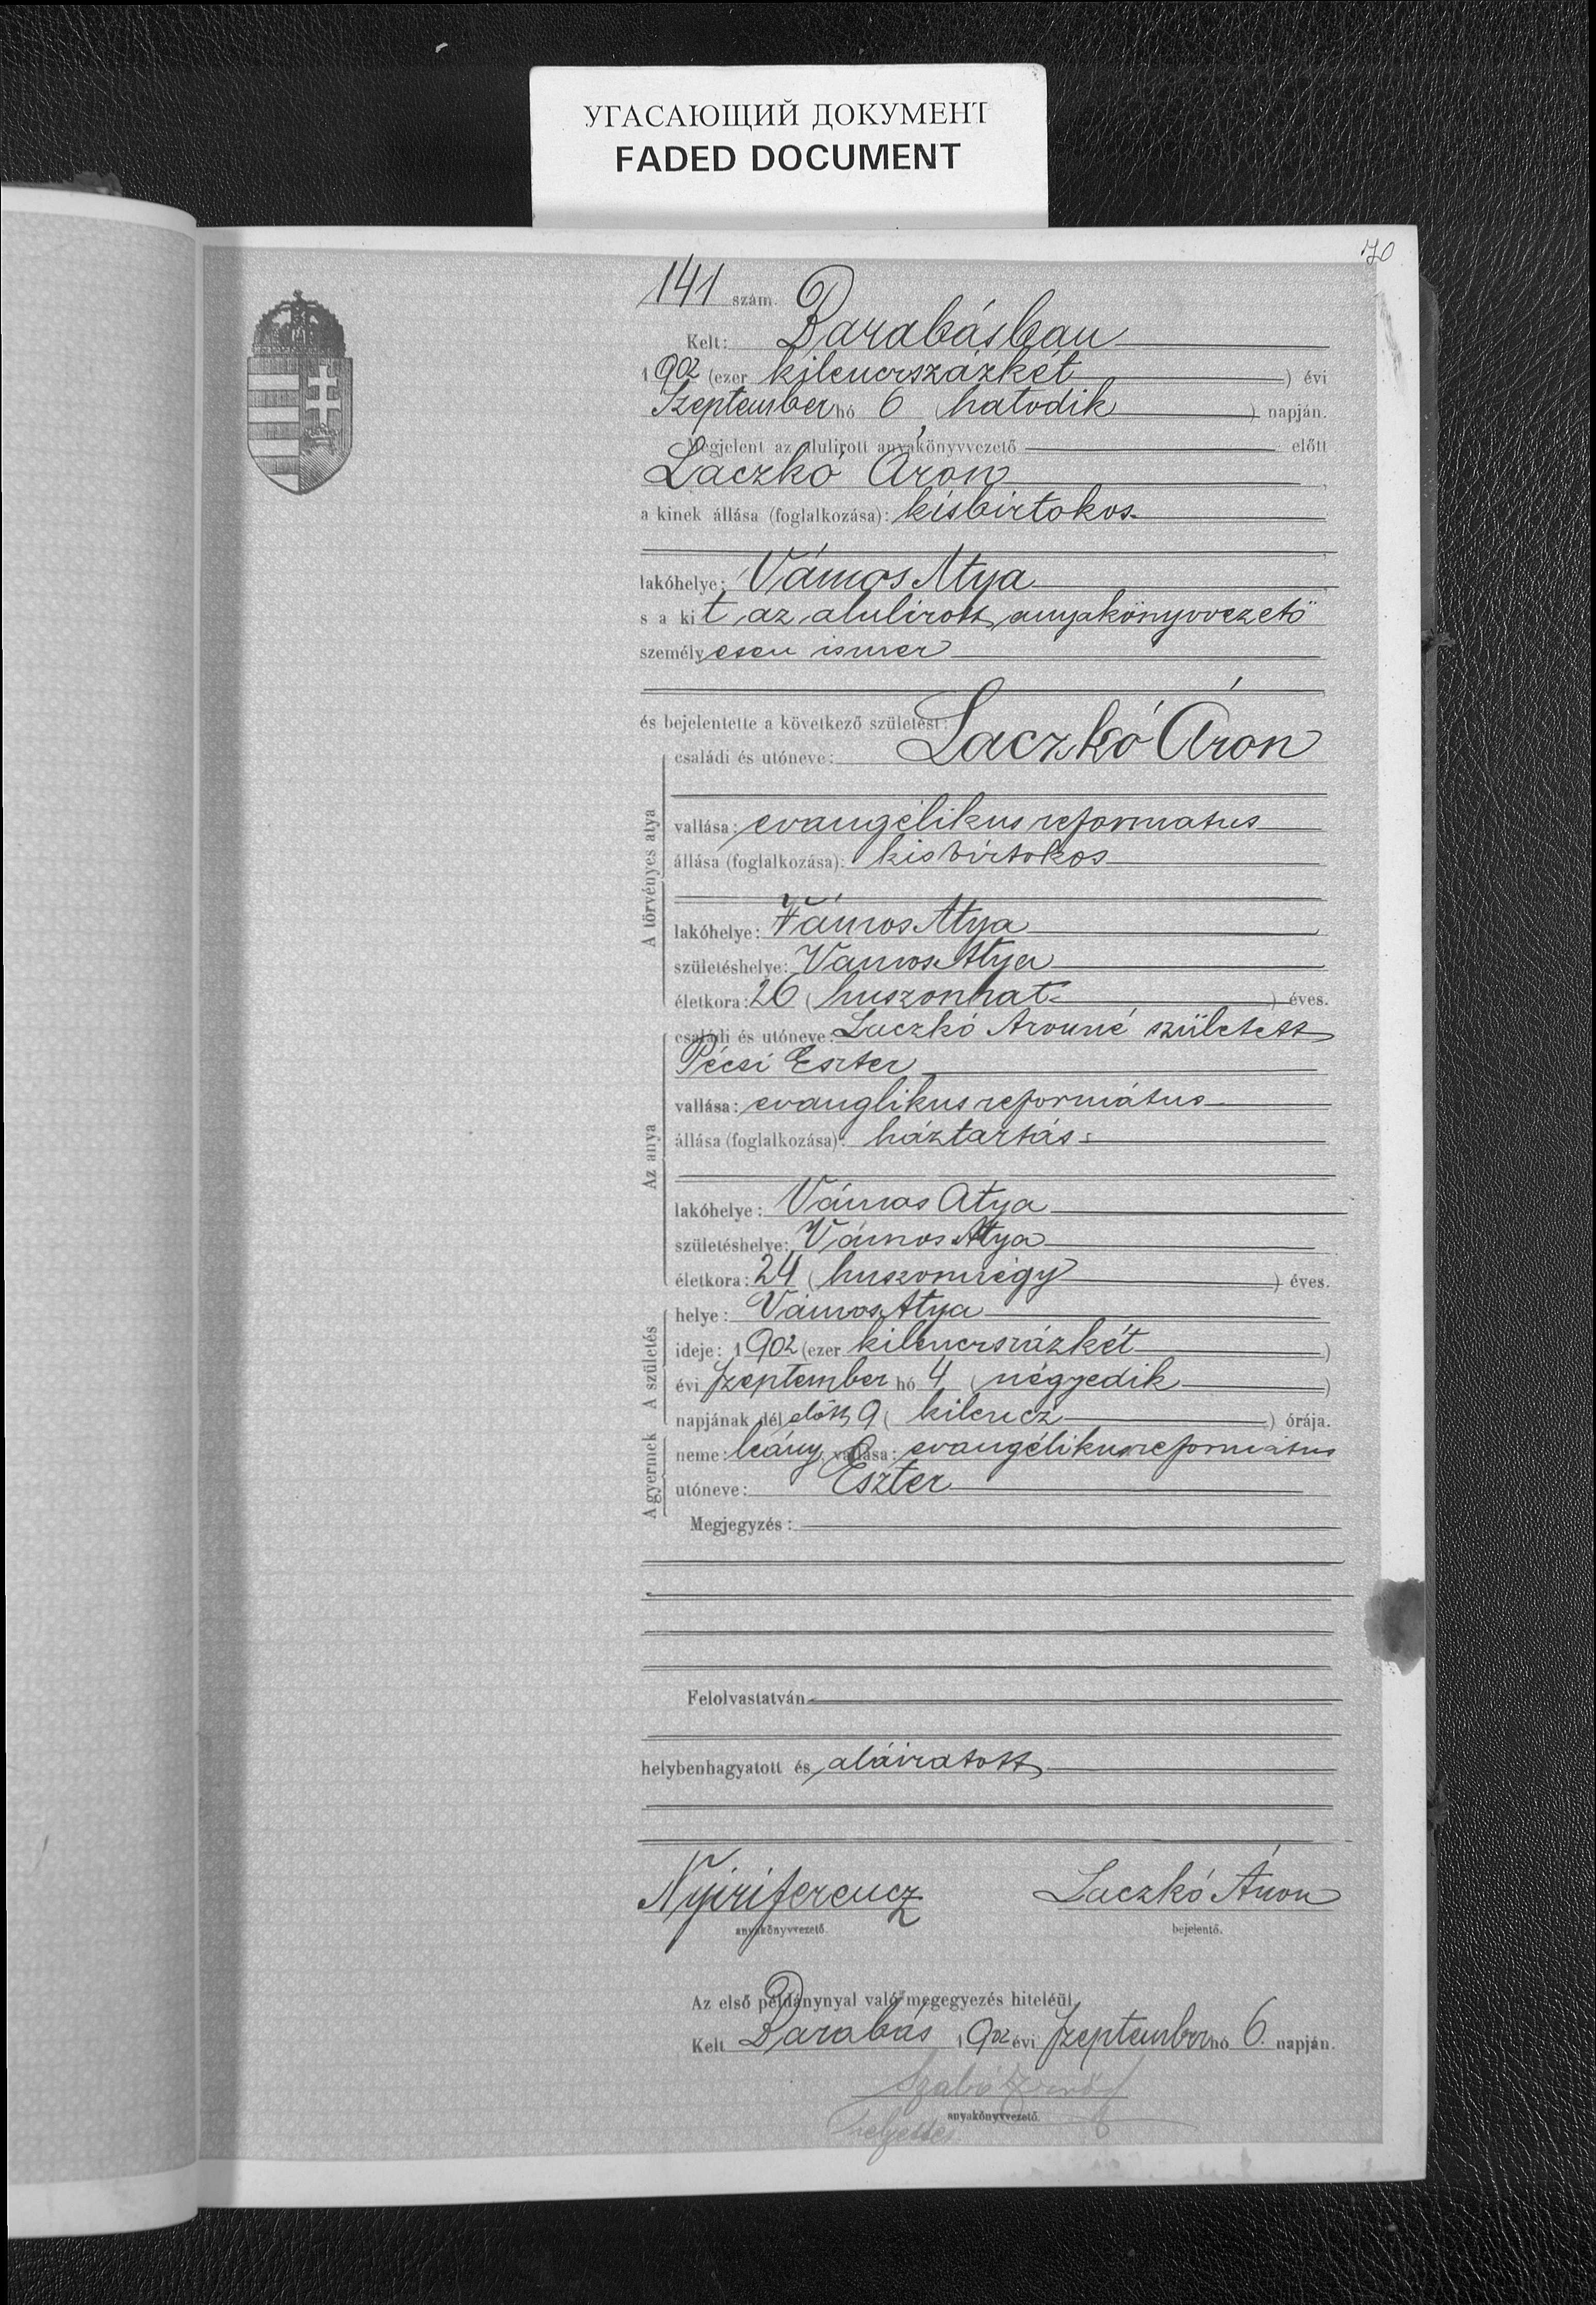 УГАСАЮЩИЙ ДОКУМЕНТ
FADED DOCUMENT
70
141 szám.
Kelt: Barabásban
1902 (ezer kilenczszázkét) évi
Szeptember hó 6 (hatodik) napján.
Megjelent az alulirott anyakönyvvezető előtt
Laczkó Áron
a kinek állása (foglalkozása): kisbirtokos
lakóhelye: Vámos Atya
s a kit az alulirott anyakönyvvezető
személyesen ismer
és bejelentette a következő születést:
A törvényes atya
családi és utóneve: Laczkó Áron
vallása: evangélikus reformatus
állása (foglalkozása): kisbirtokos
lakóhelye: Vámos Atya
születéshelye: Vamos Atya
életkora: 26 (huszonhat) éves.
Az anya
családi és utóneve: Laczkó Aronné született
Pécsi Eszter
vallása: evanglikus református
állása (foglalkozása): háztartás
lakóhelye: Vámos Atya
születéshelye: Vámos Atya
életkora: 24 (huszonnégy) éves.
A születés
helye: Vámos Atya
ideje: 1902 (ezer kilenczszázkét)
évi Szeptember hó 4 (négyedik)
napjának dél előtt 9 (kilencz) órája.
A gyermek
neme: leány, vallása: evangélikus református
utóneve: Eszter
Megjegyzés:
Felolvastatván
helybenhagyatott és aláiratott
Nyiri Ferencz Laczkó Áron
anyakönyvvezető. bejelentő.
Az első példánynyal való megegyezés hiteléül
Kelt Barabás 1902 évi Szeptember hó 6. napján.
Szabó
anyakönyvvezető.
helyettes